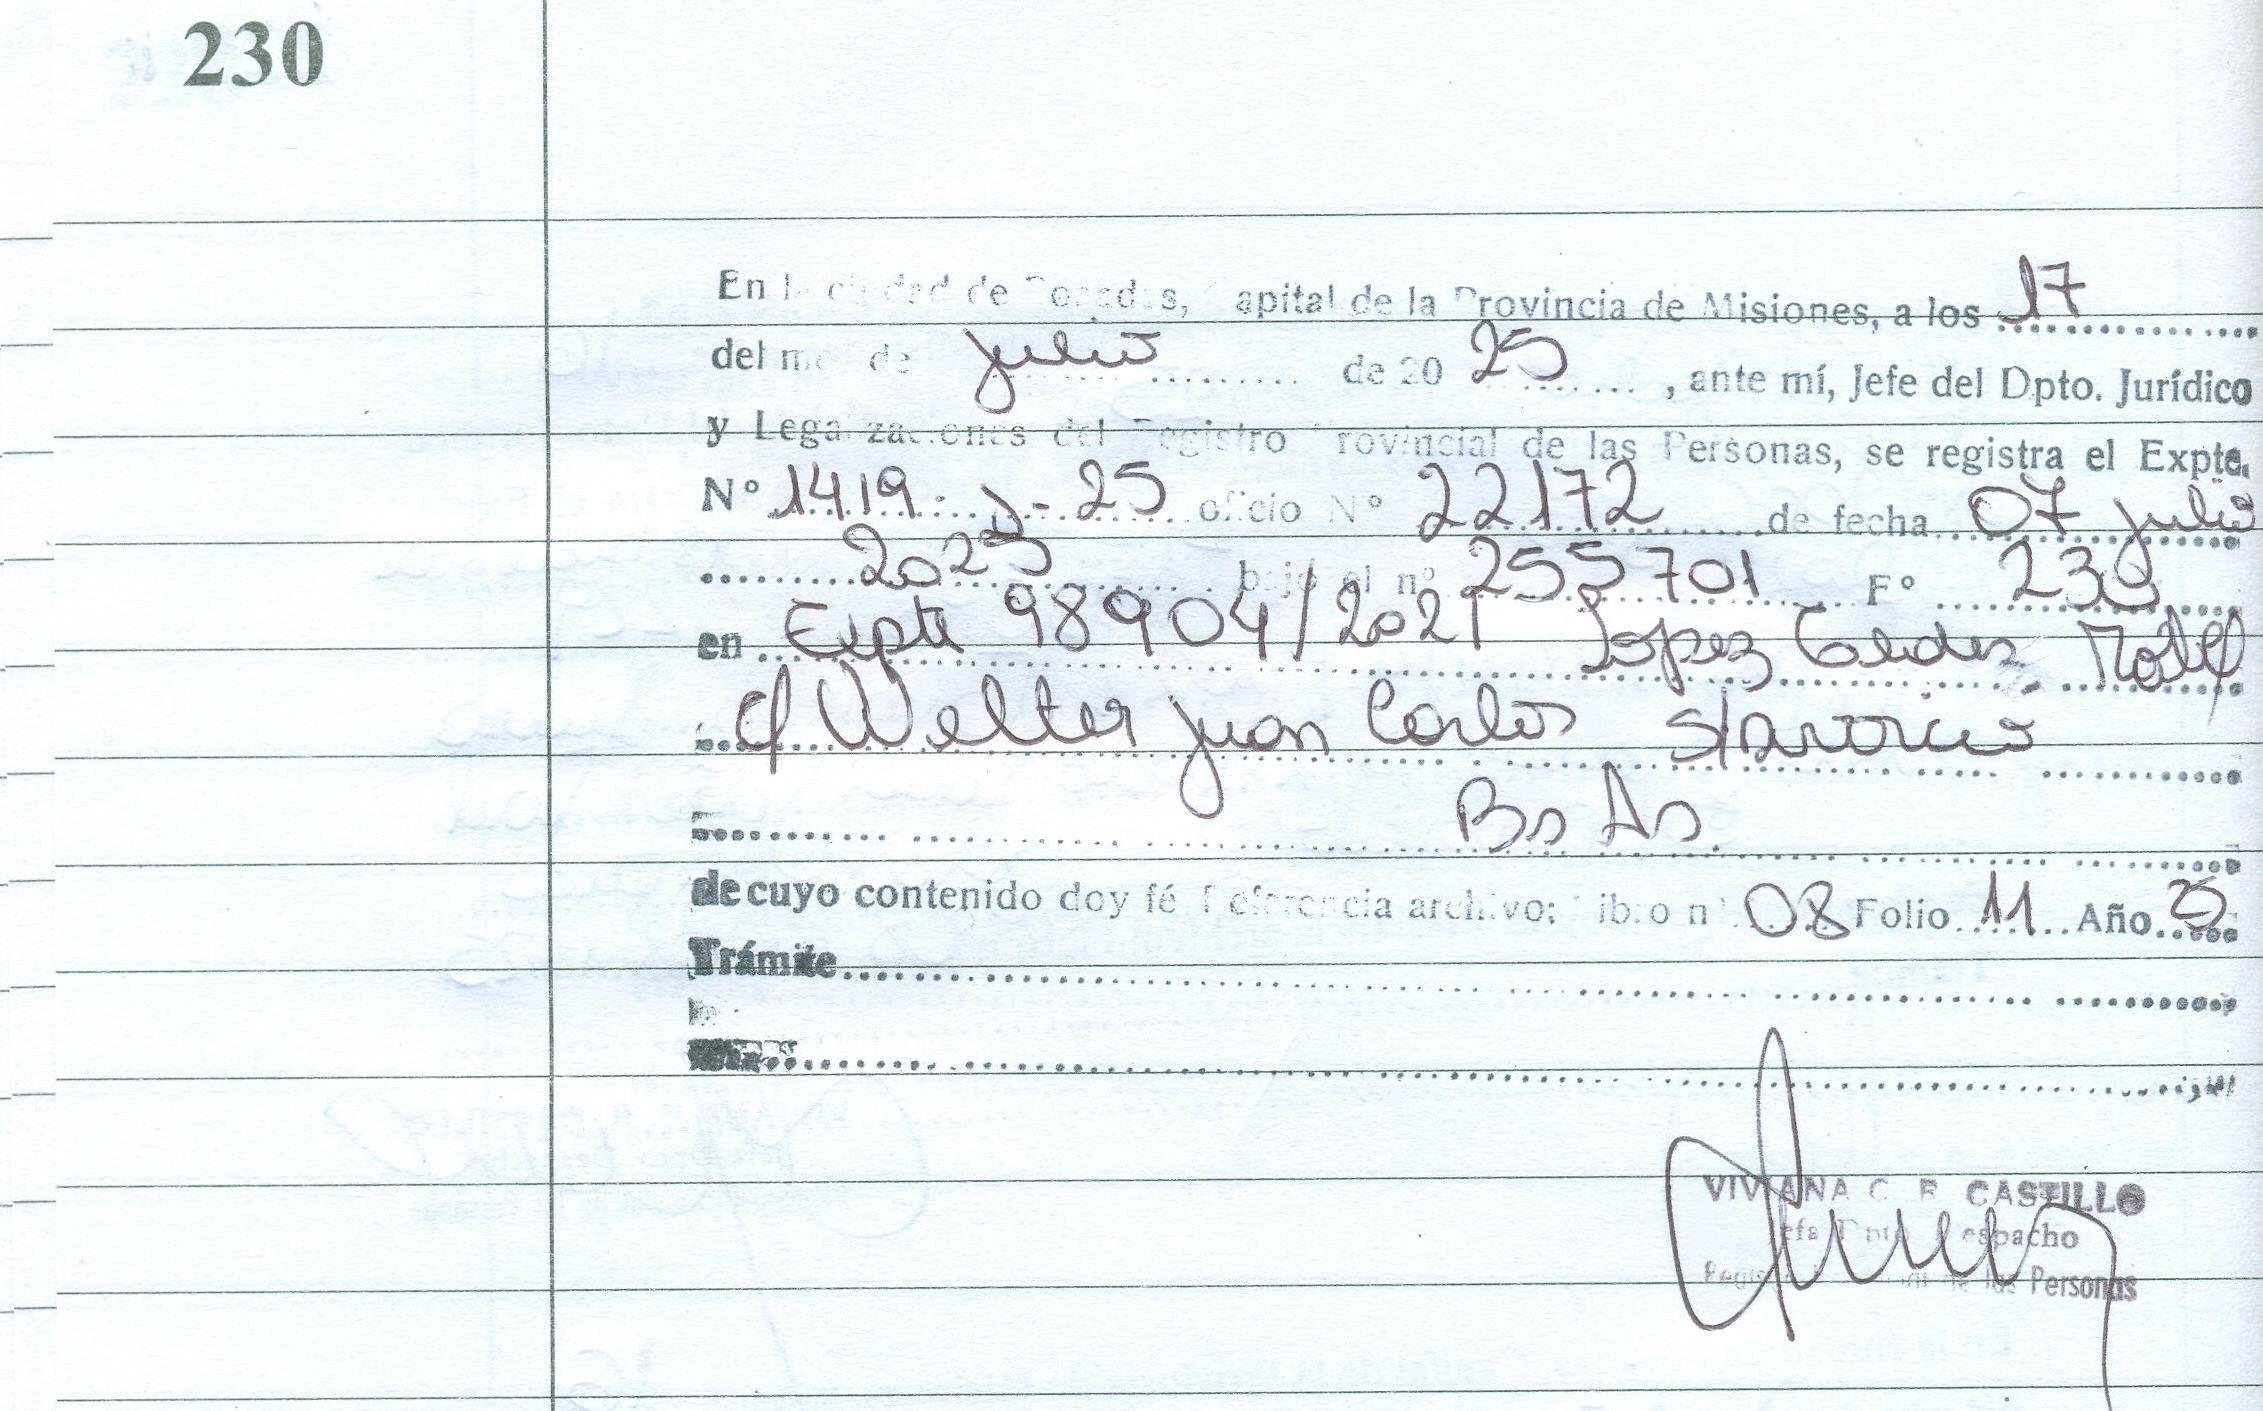 230
En la ciudad de Posadas, Capital de la Provincia de Misiones, a los 17
del mes de julio de 20 25, ante mí, Jefe del Dpto. Jurídico
y Legalizaciones del Registro Provincial de las Personas, se registra el Expte.
Nº 1419 - J - 25 oficio Nº 22172 de fecha 07 julio
2025 bajo el nº 255701 Fº 230
en Expte 98904/2021 Lopez
c/ Welter Juan Carlos s/Divorcio
Bs As.
de cuyo contenido doy fé Referencia archivo: Libro nº 08 Folio 11 Año 25
Trámite
VIVIANA C. R. CASTILLO
Jefa Dpto. Despacho
Registro Provincial de las Personas